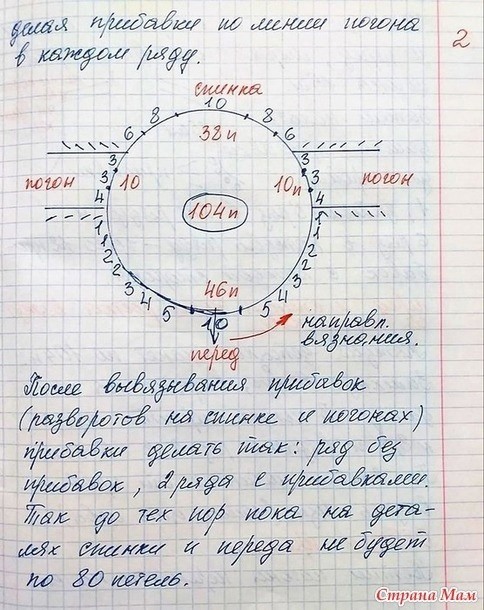 делая прибавки по линии погона
в каждом ряду.
2
спинка
10
8 8
6 6
38п
3 3
3 3
погон 10 10п погон
4 4
104п
1 1
1 1
2 2
2 2
3 3
4 4
5 5
46п
10
перед
направл.
вязнания.
После вывязывания прибавок
(разворотов на спинке и погонах)
прибавки делать так: ряд без
прибавок, 2 ряда с прибавками.
Так до тех пор пока на дета-
лях спинки и переда не будет
по 80 петель.
Страна Мам